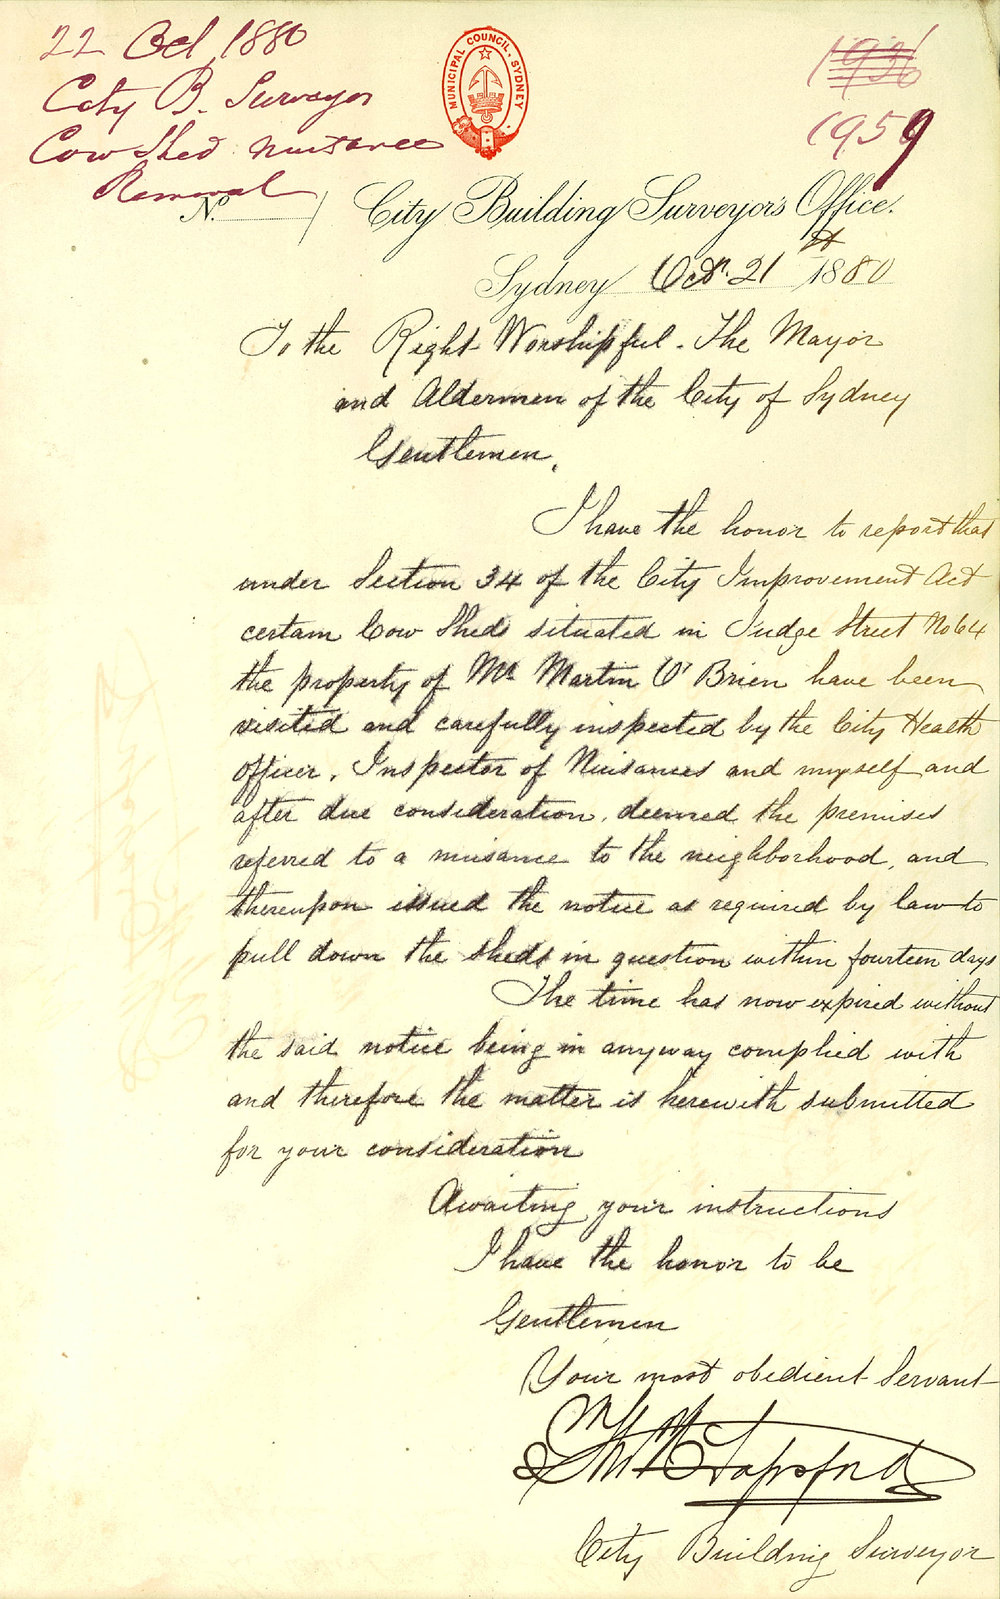 22 Oct 1880
City B. Surveyor
Cow Shed nuisance
Removal
MUNICIPAL COUNCIL. SYDNEY
1936
1959
No.
City Building Surveyor's Office.
Sydney Octr. 21st 1880
To the Right Worshipful. The Mayor
and Aldermen of the City of Sydney
Gentlemen,
I have the honor to report that
under Section 34 of the City Improvement Act
certain Cow Sheds situated in Judge Street No 64
the property of Mr Martin O'Brien have been
visited and carefully inspected by the City Health
Officer, Inspector of Nuisances and myself and
after due consideration, deemed the premises
referred to a nuisance to the neighborhood, and
thereupon issued the notice as required by law to
pull down the sheds in question within fourteen days
The time has now expired without
the said notice being in anyway complied with
and therefore the matter is herewith submitted
for your consideration
Awaiting your instructions
I have the honor to be
Gentlemen
Your most obedient Servant
City Building Surveyor